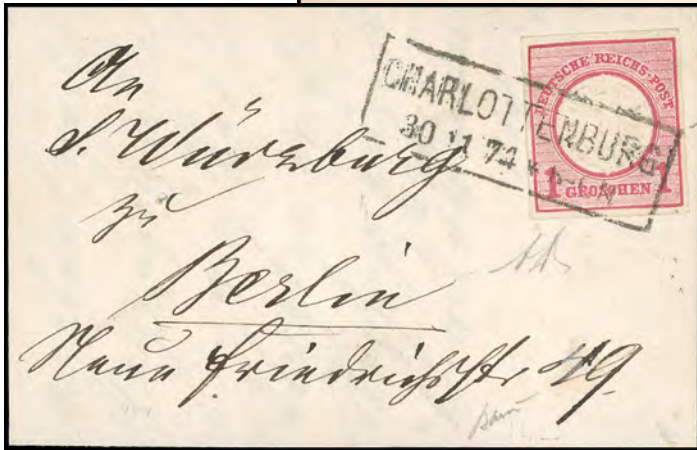 An
S. Würzburg
zu
Berlin
Neue Friedrichsstr. 49.
CHARLOTTENBURG
30 11 74
DEUTSCHE REICHS-POST
1 GROSCHEN 1